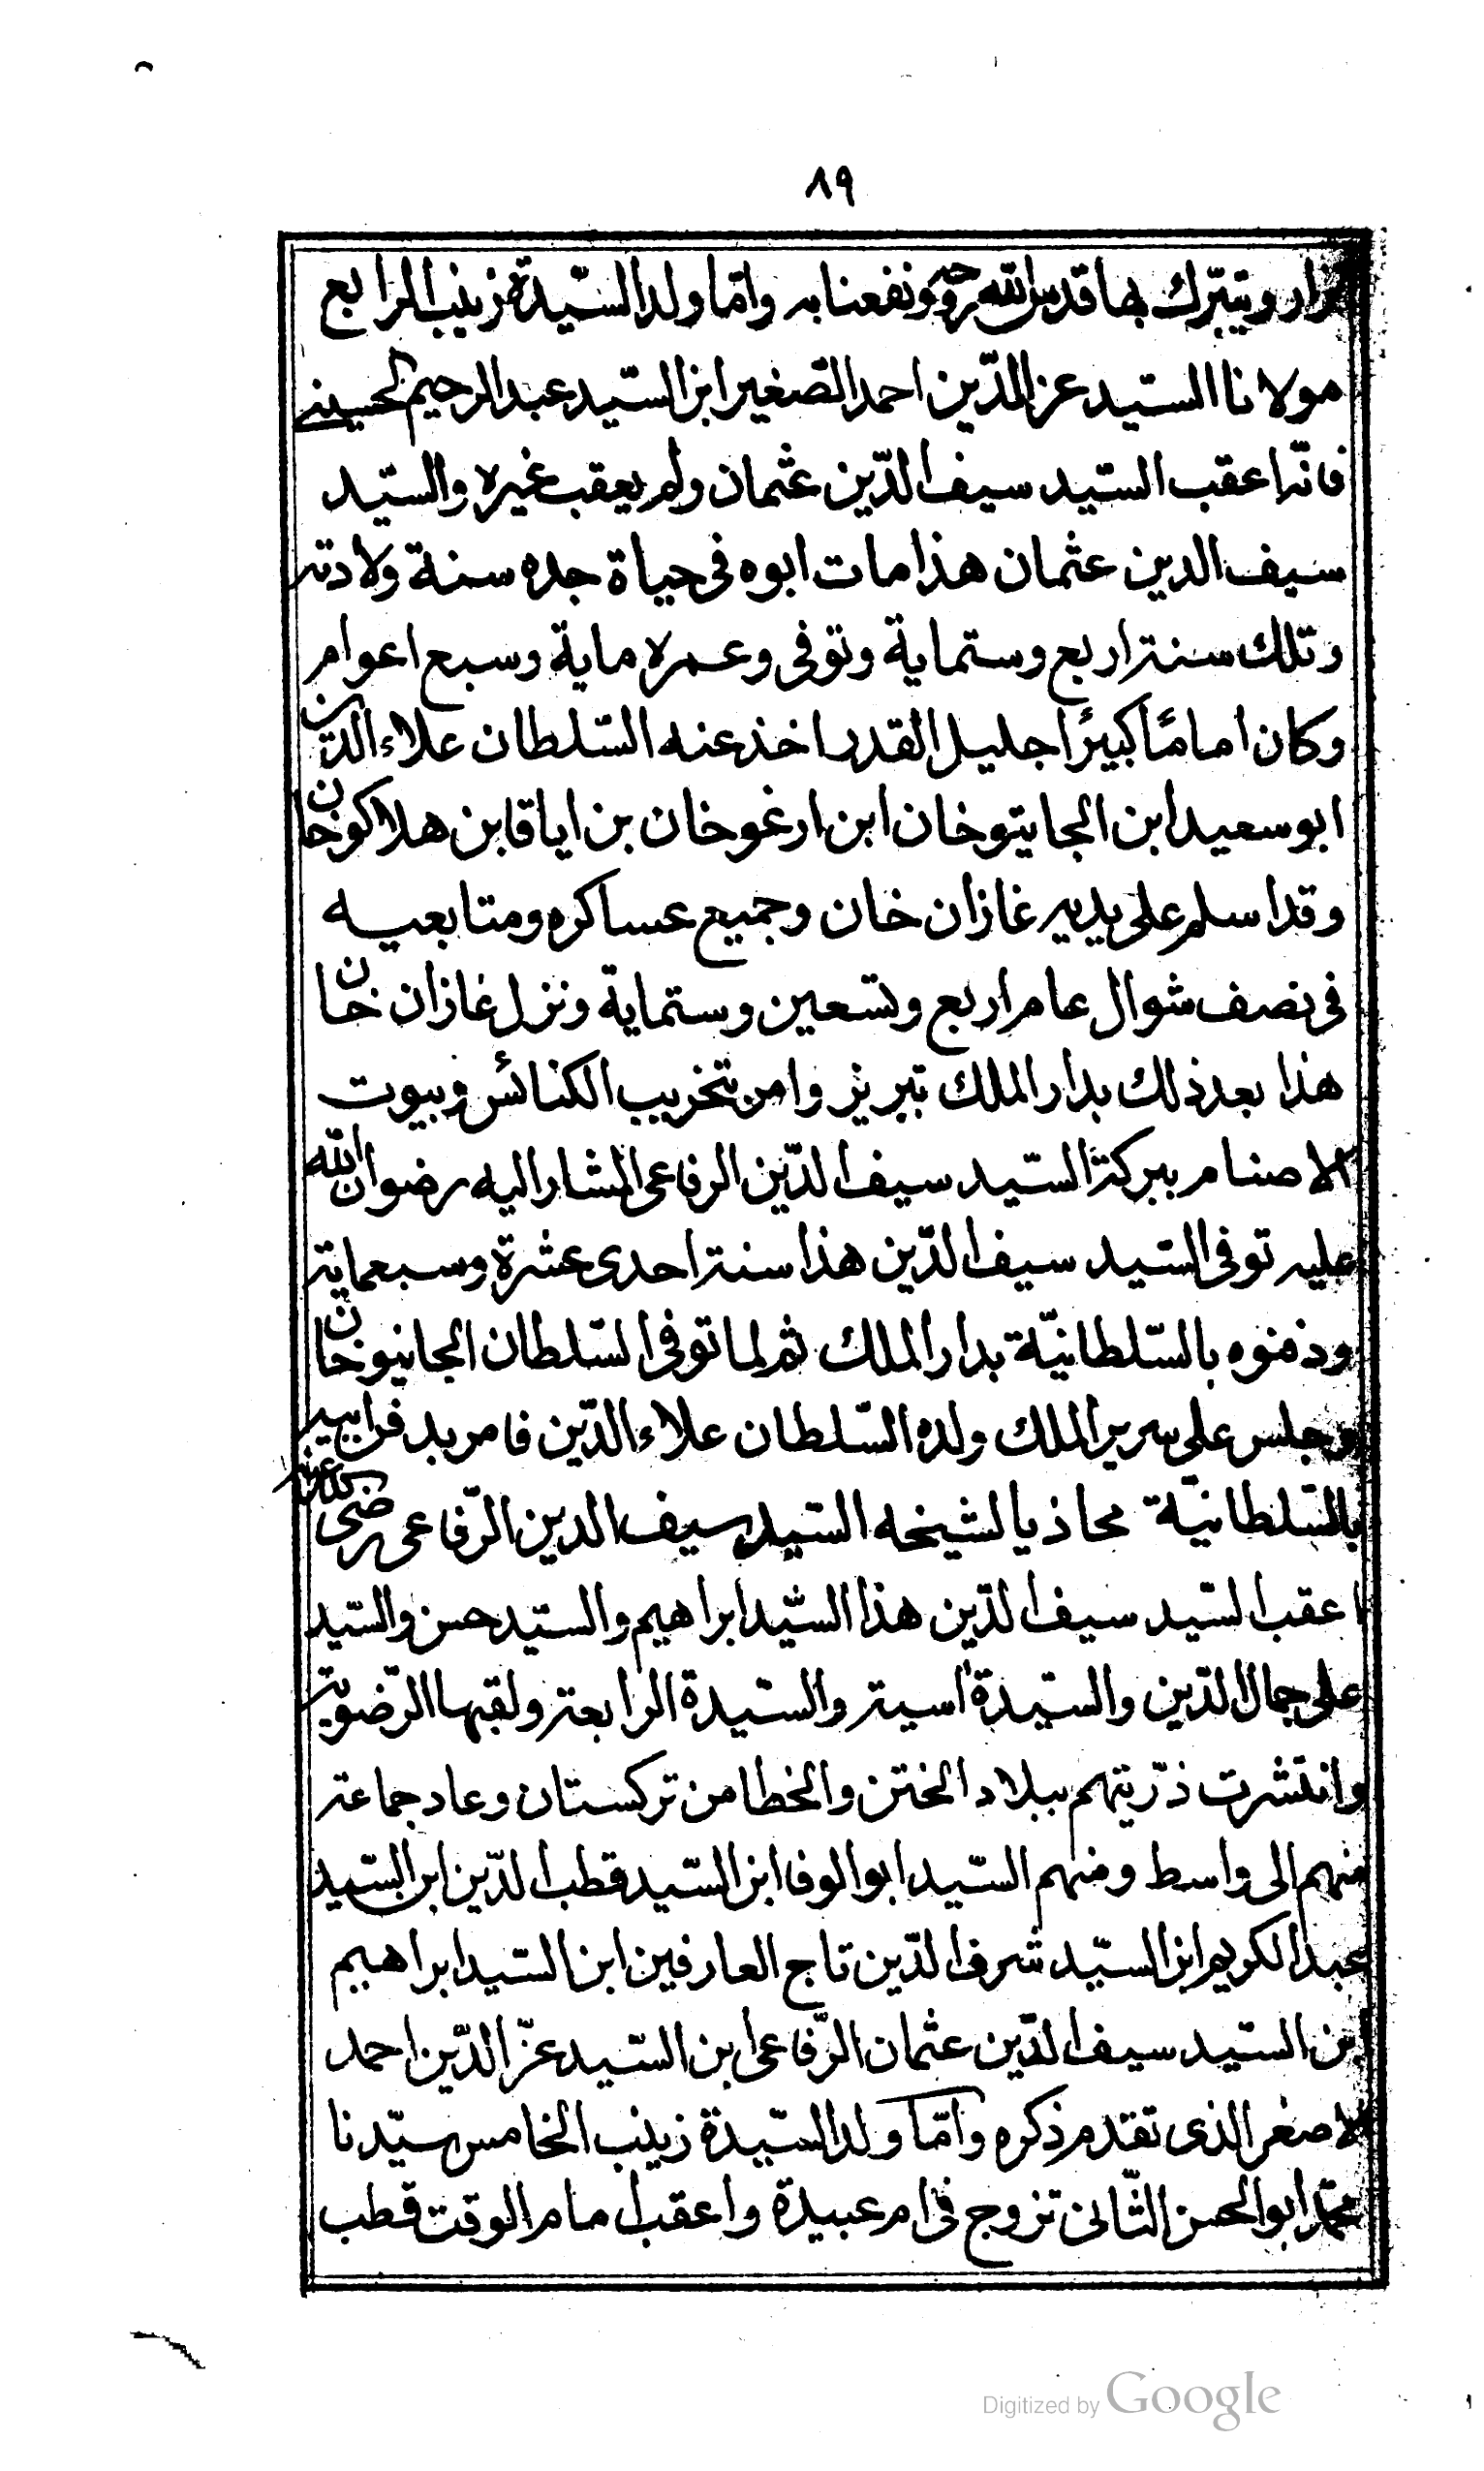 ٨٩
يزار ويتبرّك بها قدس الله روحه ونفعنا به وامّا ولد السّيدة زينب الرابع
مولانا السيد عز الدّين احمد الصغير ابن السّيد عبد الرحيم الحسيني
فانّه اعقب السّيد سيف الدّين عثمان ولم يعقب غيره والسّيد
سيف الدين عثمان هذا مات ابوه فى حياة جده سنة ولادته
وتلك سنة اربع وستماية وتوفى وعمره ماية وسبع اعوام
وكان اماما كبيرًا جليل القدر اخذ عنه السّلطان علاء الدّين
ابو سعيد ابن الجايتوخان ابن ارغوخان بن اياقا بن هلاكوخان
وقد اسلم على يديه غازان خان وجميع عساكره ومتابعيه
فى نصف شوال عام اربع وتسعين وستماية ونزل غازان خان
هذا بعد ذلك بدار الملك تبريز وامر بتخريب الكنائس وبيوت
الاصنام ببركة السّيد سيف الدّين الرفاعى المشار اليه رضوان الله
عليه توفى السّيد سيف الدّين هذا سنة احدى عشرة وسبعماية
ودفنوه بالسّلطانيّة بدار الملك ثم لما توفى السّلطان الجانيوخان
وجلس على سرير الملك ولده السّلطان علاء الدّين فامر بدفن ابيه
بالسّلطانيّة محاذيا لشيخه السّيد سيف الدين الرّفاعى رضى الله عنه
اعقب السّيد سيف الدّين هذا السّيد ابراهيم والسّيد حسن والسّيد
على جمال الدّين والسّيدة اسية والسّيدة الرابعة ولقبها الرّضوية
وانتشرت ذرّيتهم ببلاد الختن والخطا من تركستان وعاد جماعة
منهم الى واسط ومنهم السّيد ابو الوفا ابن السّيد قطب الدّين ابن السّيد
عبد الكريم ابن السّيد شرف الدّين تاج العارفين ابن السّيد ابراهيم
ابن السّيد سيف الدّين عثمان الرّفاعى ابن السّيد عزّ الدّين احمد
الاصغر الذى تقدم ذكره وامّا ولد السّيدة زينب الخامس سيّدنا
محمّد ابو الحسن الثّانى تزوج فى ام عبيدة واعقب امام الوقت قطب
Digitized by Google